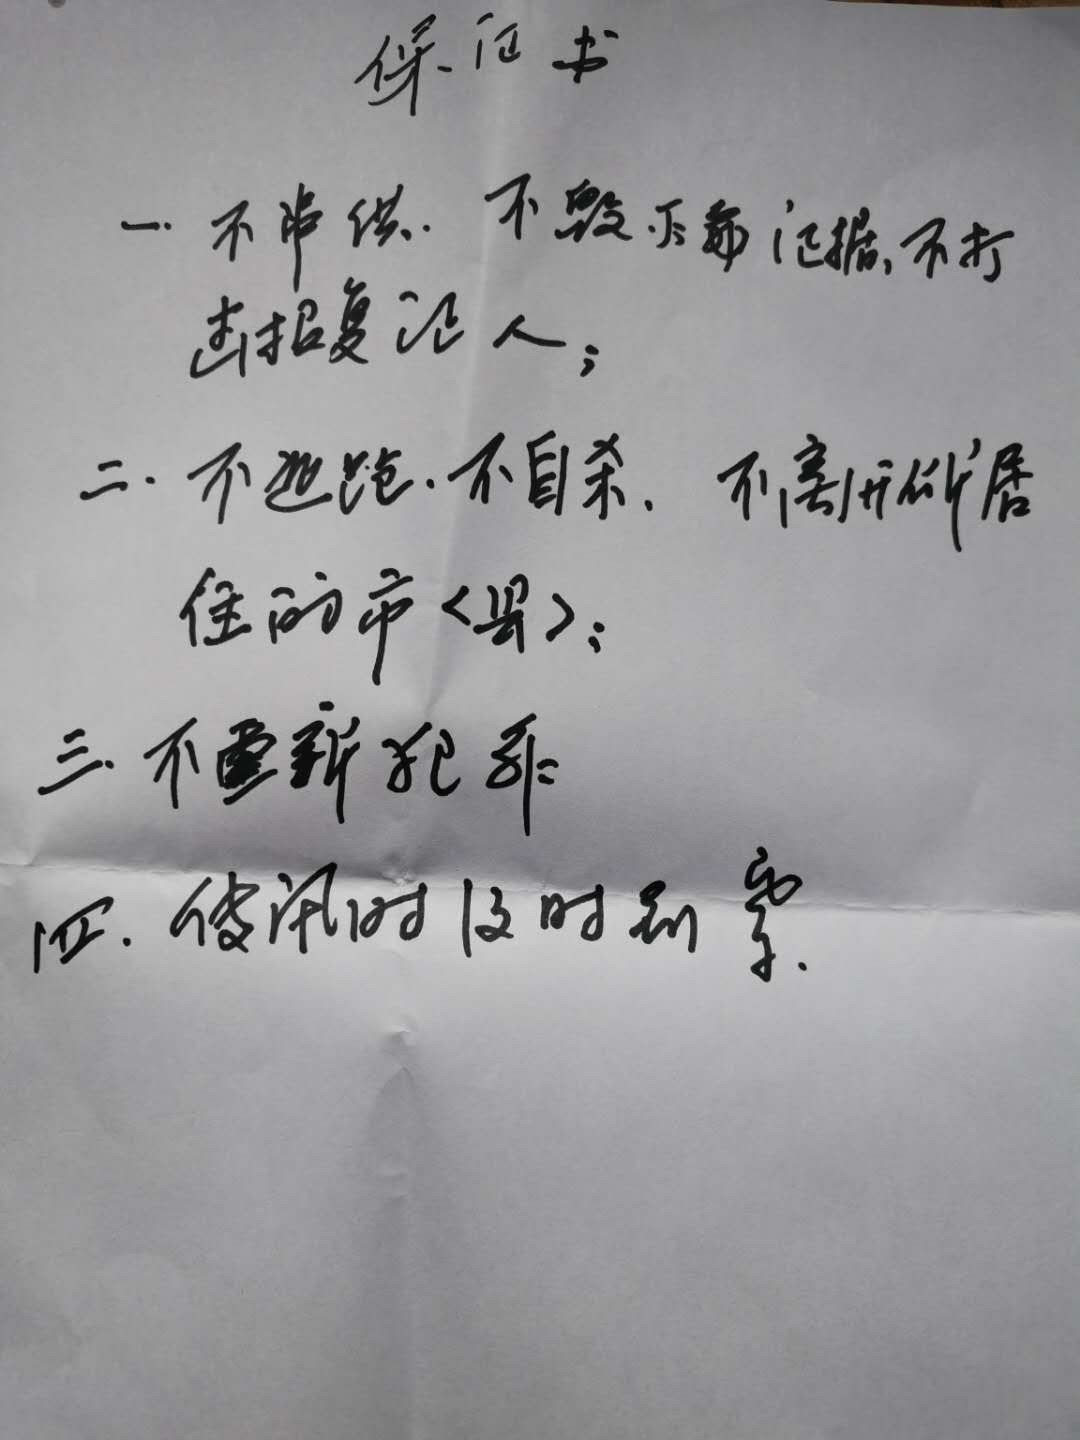 保证书
一.不串供.不毁灭证据,不打
击报复证人;
二.不逃跑.不自杀.不离开所居
住的市<县>;
三.不重新犯罪
四.传讯时及时到案.